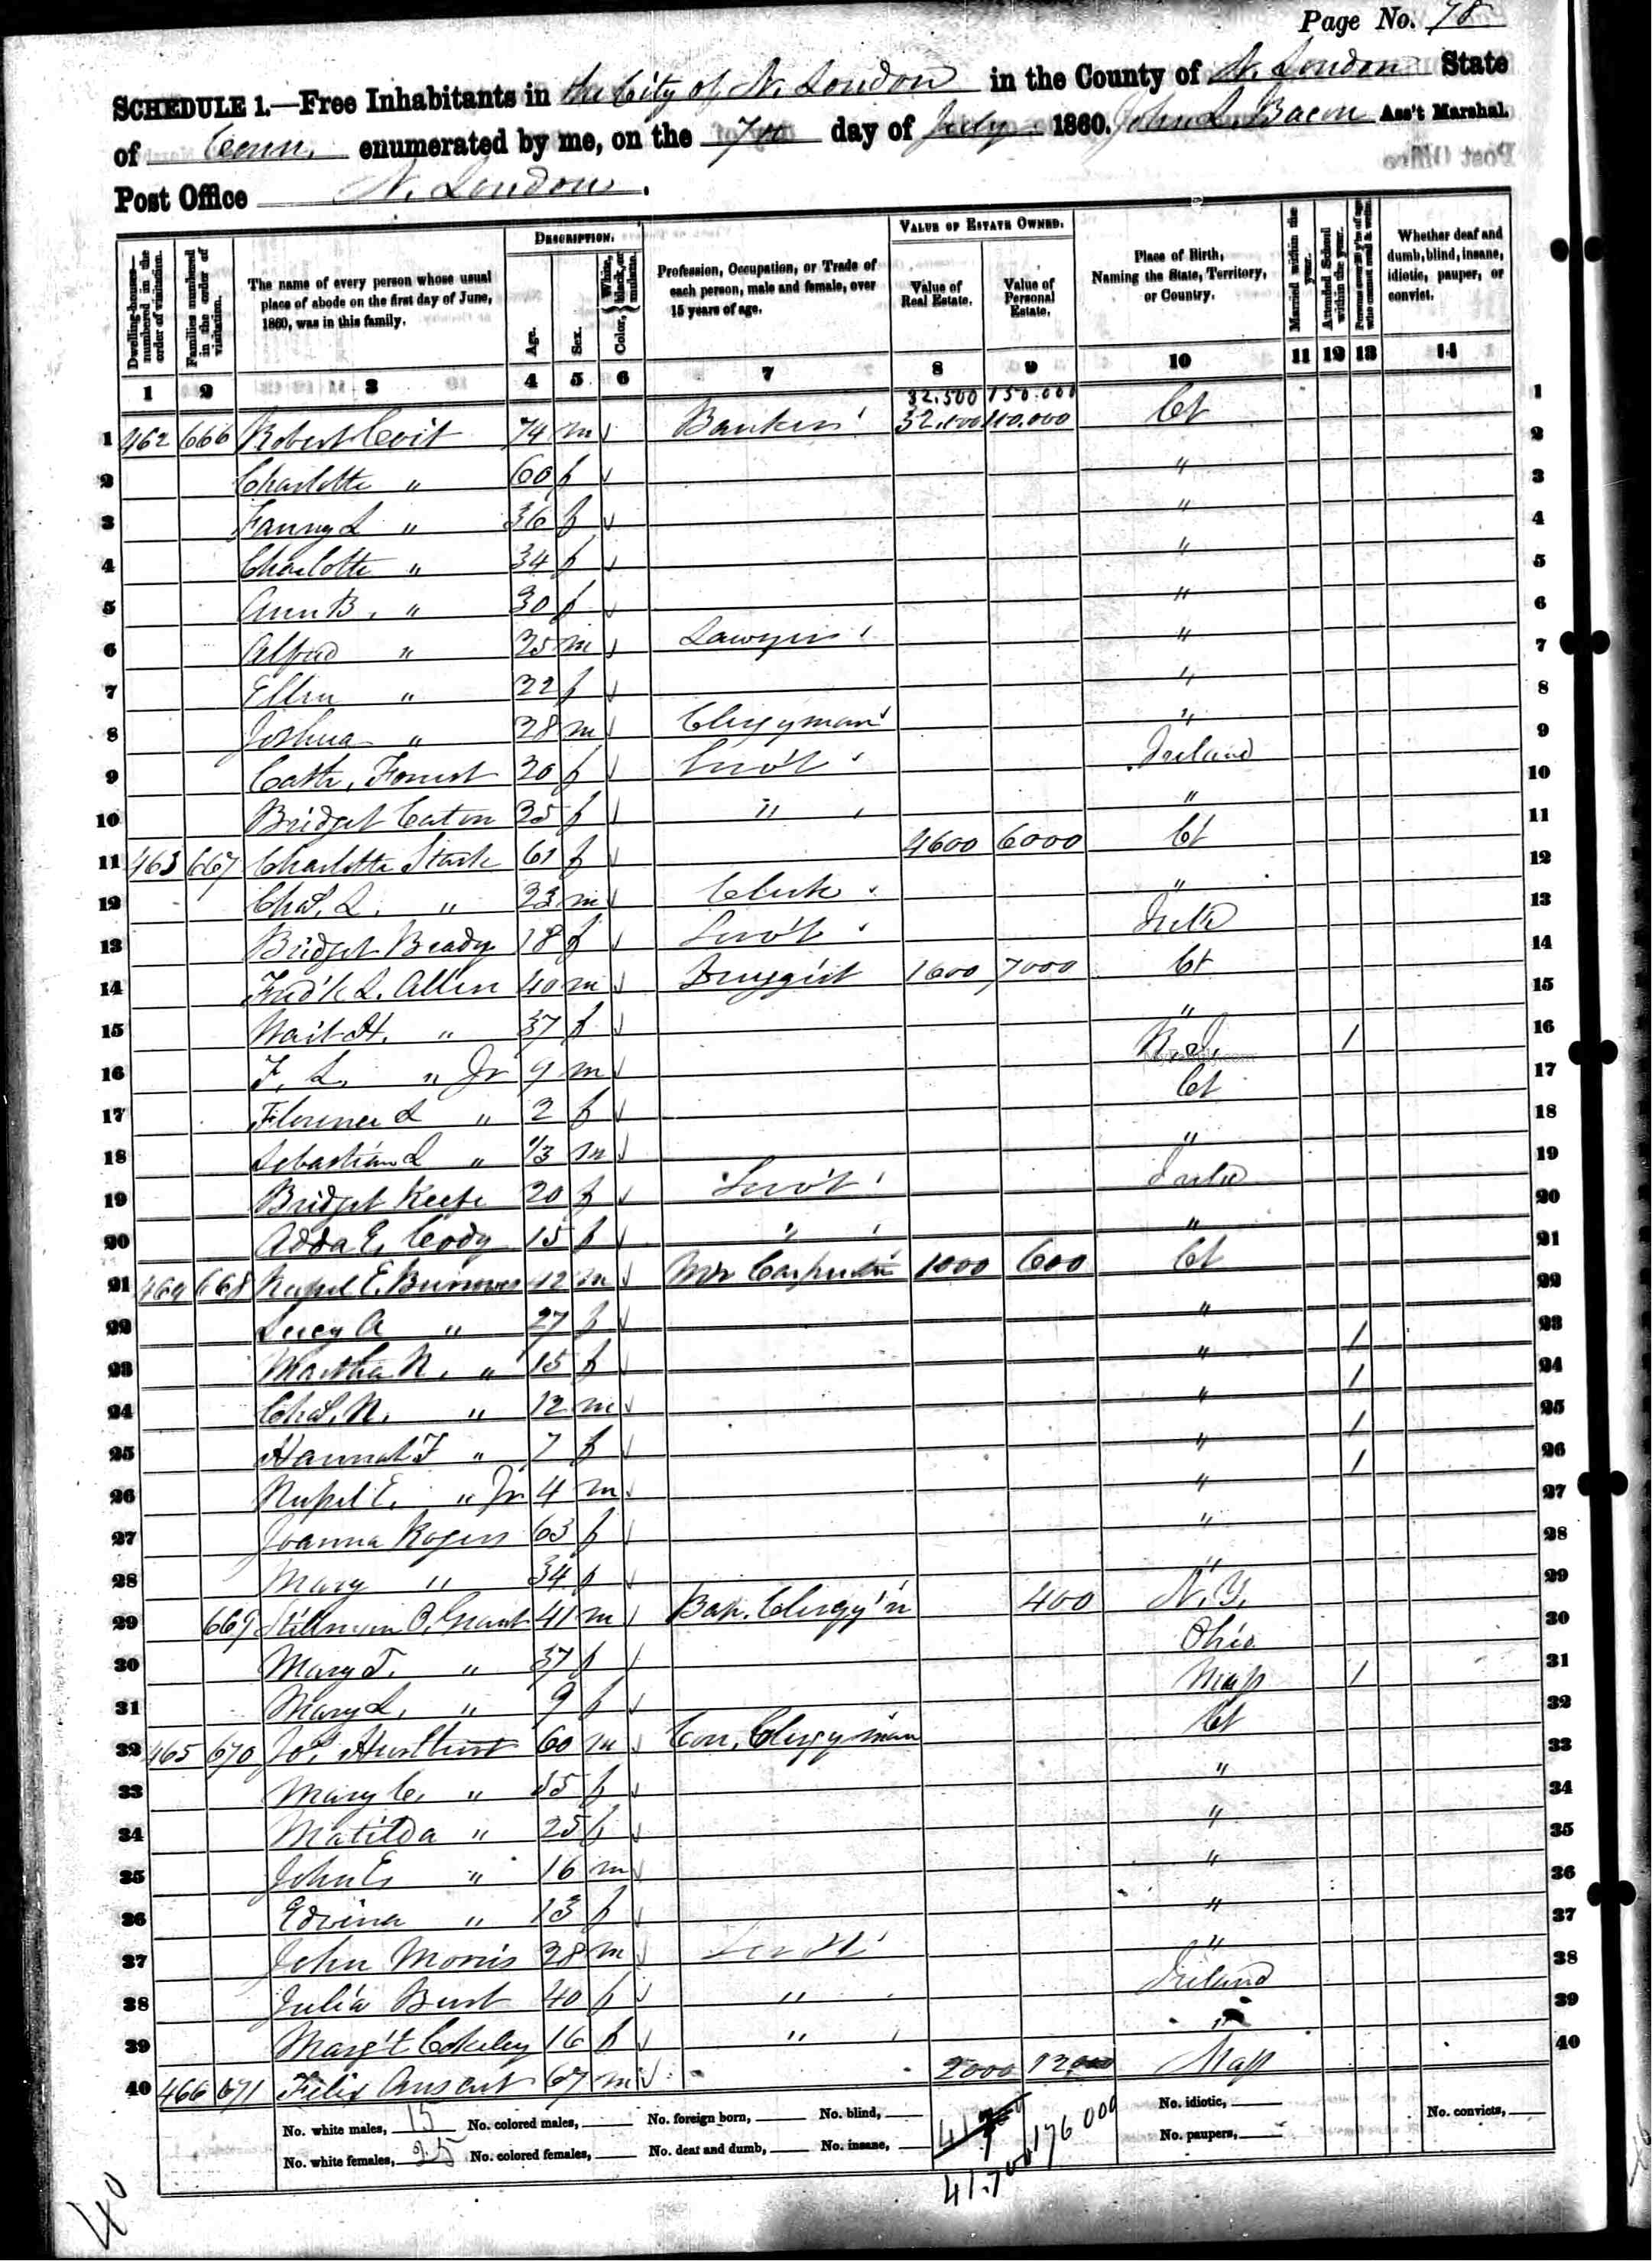 Page No. 78
SCHEDULE 1.—Free Inhabitants in the City of N. London in the County of N. London State
of Conn. enumerated by me, on the 7th day of July 1860. John L. Bacon Ass't Marshal.
Post Office N. London.
Dwelling-houses—numbered in the order of visitation.
Families numbered in the order of visitation.
The name of every person whose usual place of abode on the first day of June, 1860, was in this family.
DESCRIPTION.
Age.
Sex.
Color, { White, black, or mulatto.
Profession, Occupation, or Trade of each person, male and female, over 15 years of age.
VALUE OF ESTATE OWNED.
Value of Real Estate.
Value of Personal Estate.
Place of Birth, Naming the State, Territory, or Country.
Married within the year.
Attended School within the year.
Persons over 20 y'rs of age who cannot read & write.
Whether deaf and dumb, blind, insane, idiotic, pauper, or convict.
1 2 3 4 5 6 7 8 9 10 11 12 13 14
32.500 150.000
1 462 666 Robert Coit 74 m Banker 110.000 Ct 1
2 Charlotte " 60 f " 2
3 Fanny L " 36 f " 3
4 Charlotte " 34 f " 4
5 Ann B. " 30 f " 5
6 Alfred " 25 m Lawyer " 6
7 Ellen " 22 f " 7
8 Joshua " 28 m Clergyman " 8
9 Cath. Forrest 20 f Serv't Ireland 9
10 Bridget Caton 25 f " " 10
11 463 667 Charlotte Stark 61 f 4600 6000 Ct 11
12 Chas. L. " 23 m Clerk " 12
13 Bridget Brady 18 f Serv't Irel'd 13
14 Fred'k L. Allen 40 m Druggist 1600 7000 Ct 14
15 Wait H. " 37 f " 15
16 F. L. " Jr 9 m R.I. 1 16
MyFamily.com
17 Florence L " 2 f Ct 17
18 Sebastian L " m " 18
19 Bridget Keefe 20 f Serv't Irel'd 19
20 Adda E. Cody 15 f " " 20
21 464 668 E. Burrows 42 m Mr Carpenter 1000 600 Ct 21
22 Lucy A " 27 f " 22
23 Martha N. " 15 f " 1 23
24 Chas. N. " 12 m " 1 24
25 Hannah F " 7 f " 1 25
26 E. " Jr 4 m " 1 26
27 Joanna Rogers 63 f " 27
28 Mary " 34 f " 28
29 669 Stillman B. Grant 41 m Bap. Clergy'n 400 N.Y. 29
30 Mary T. " 37 f Ohio 30
31 Mary L. " 9 f Mass 1 31
32 465 670 Jos. Hurlburt 60 m Con. Clergyman Ct 32
33 Mary C. " 55 f " 33
34 Matilda " 25 f " 34
35 John E. " 16 m " 35
36 Edwina " 13 f " 36
37 John Morris 28 m Serv't " 37
38 Julia Burt 40 f " Ireland 38
39 Marg't Cokeley 16 f " " 39
40 466 671 Felix 67 m 2000 12,000 Mass 40
No. white males, 15 No. colored males, No. foreign born, No. blind, No. idiotic, No. convicts,
No. white females, 25 No. colored females, No. deaf and dumb, No. insane, No. paupers,
41.700 176 000
40